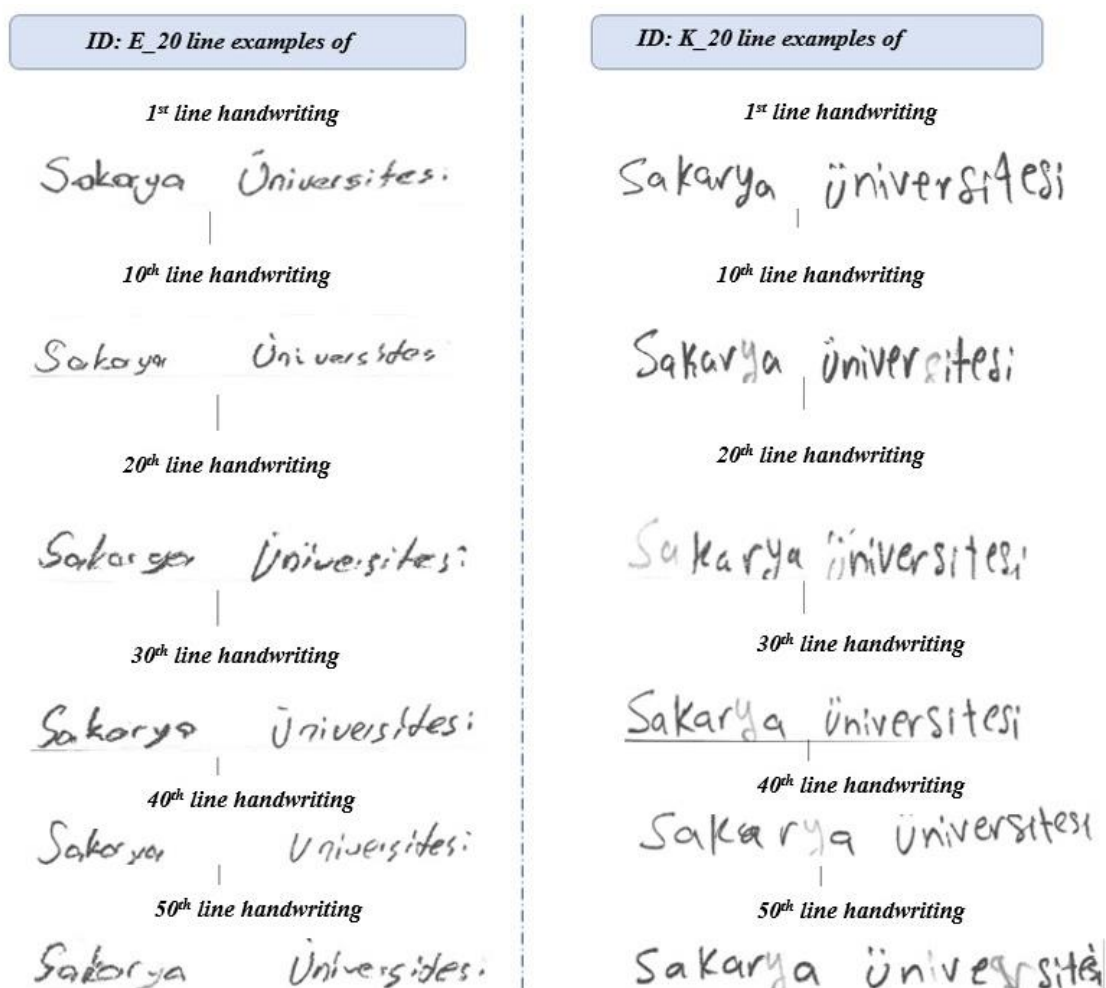 ID: E_20 line examples of
1st line handwriting
Sakarya Üniversitesi
10th line handwriting
Sakarya Üniversitesi
20th line handwriting
Sakarya Üniversitesi
30th line handwriting
Sakarya Üniversitesi
40th line handwriting
Sakarya Universitesi
50th line handwriting
Sakarya Üniversitesi
ID: K_20 line examples of
1st line handwriting
Sakarya üniversitesi
10th line handwriting
Sakarya üniversitesi
20th line handwriting
Sakarya üniversitesi
30th line handwriting
Sakarya üniversitesi
40th line handwriting
Sakarya üniversitesi
50th line handwriting
Sakarya üniversitesi